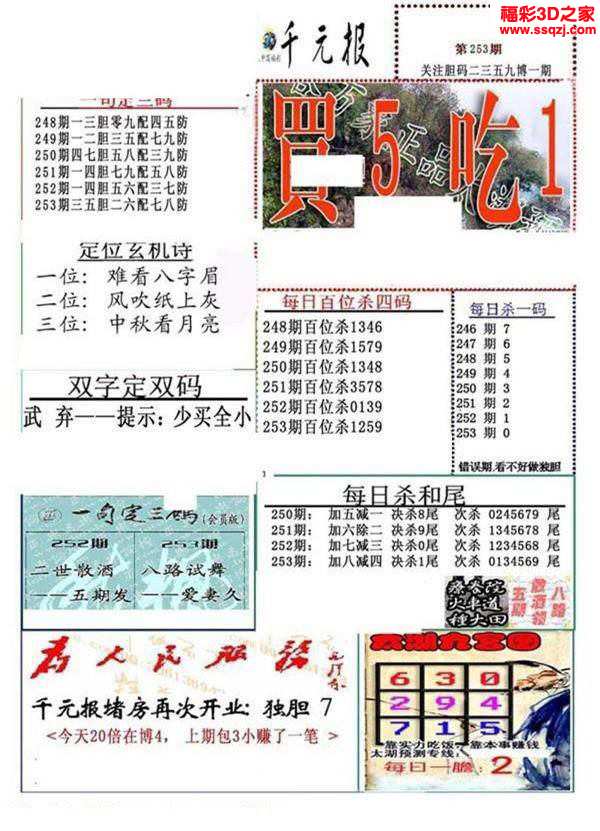 福彩3D之家
www.ssqzj.com
千元报
第253期
关注胆码二三五九博一期
一句定三码
248期一三胆零九配四五防
249期一二胆三五配七九防
250期四七胆五八配三九防
251期一四胆七九配五八防
252期一四胆五六配三七防
253期三五胆二六配七八防
買 5 吃 1
正品
定位玄机诗
一位: 难看八字眉
二位: 风吹纸上灰
三位: 中秋看月亮
每日百位杀四码
248期百位杀1346
249期百位杀1579
250期百位杀1348
251期百位杀3578
252期百位杀0139
253期百位杀1259
每日杀一码
246 期 7
247 期 6
248 期 5
249 期 4
250 期 3
251 期 2
252 期 1
253 期 0
错误期,看不好做独胆
双字定双码
武 弃——提示: 少买全小
每日杀和尾
250期: 加五减一 决杀8尾 次杀 0245679 尾
251期: 加六除二 决杀9尾 次杀 1345678 尾
252期: 加七减三 决杀0尾 次杀 1234568 尾
253期: 加八减四 决杀1尾 次杀 0134569 尾
一句定三码(会员版)
252期 253期
二世散酒 八路试舞
——五期发 ——爱妻久
火车道
种大田
五期
散酒领
八路
为人民服务
千元报堵房再次开业: 独胆 7
<今天20倍在博4, 上期包3小赚了一笔 >
太湖九宫图
6 3 0
2 9 4
7 1 5
靠实力吃饭, 靠本事赚钱
太湖预测专线:
每日一胆: 2